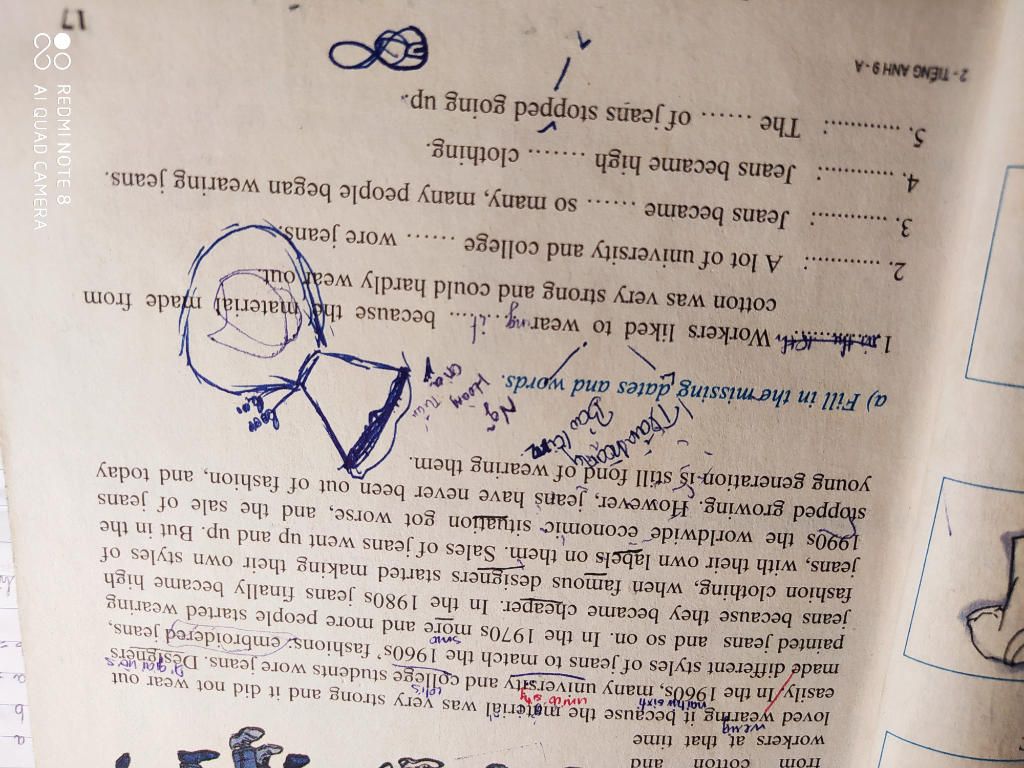 from cotton and
workers at that time
loved wearing it because the material was very strong and it did not wear out
easily. In the 1960s, many university and college students wore jeans. Designers
made different styles of jeans to match the 1960s' fashions: embroidered jeans,
painted jeans and so on. In the 1970s more and more people started wearing
jeans because they became cheaper. In the 1980s jeans finally became high
fashion clothing, when famous designers started making their own styles of
jeans, with their own labels on them. Sales of jeans went up and up. But in the
1990s the worldwide economic situation got worse, and the sale of jeans
stopped growing. However, jeans have never been out of fashion, and today
young generation is still fond of wearing them.
a) Fill in the missing dates and words.
1. Workers liked to wearing it ...... because the material made from
cotton was very strong and could hardly wear out.
2. ............: A lot of university and college ...... wore jeans.
3. ............: Jeans became ...... so many, many people began wearing jeans.
4. ............: Jeans became high ....... clothing.
5. ............: The ...... of jeans stopped going up.
2 - TIẾNG ANH 9 - A
17
REDMI NOTE 8
AI QUAD CAMERA